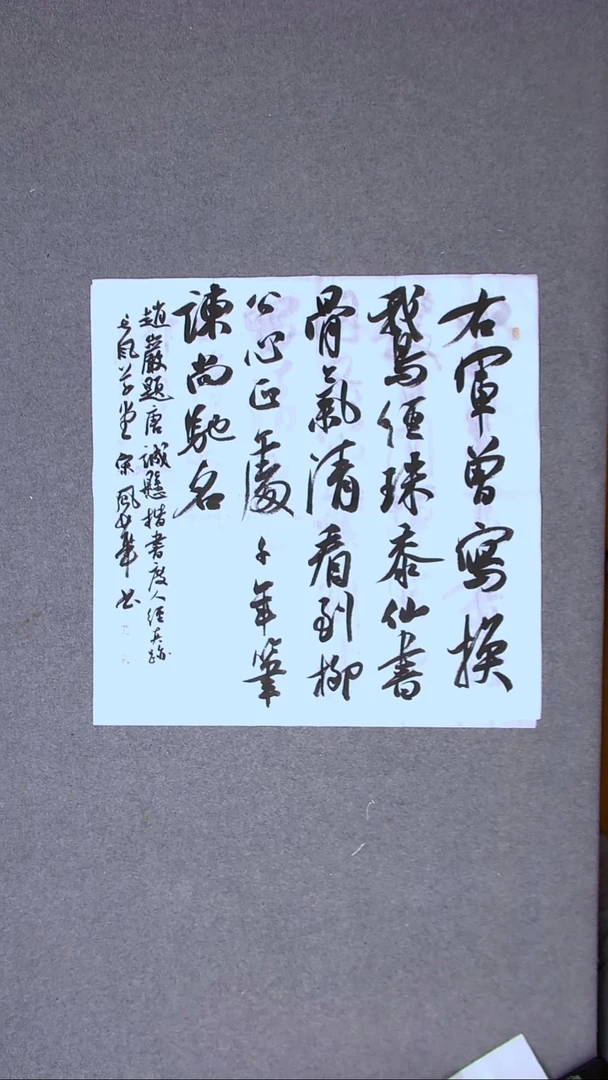 右軍曾寫換
鵝經珠黍仙書
骨氣清看到柳
公心正處千年筆
諫尚馳名
趙嚴題唐誠懸楷書度人經真跡
風草堂宋風華書